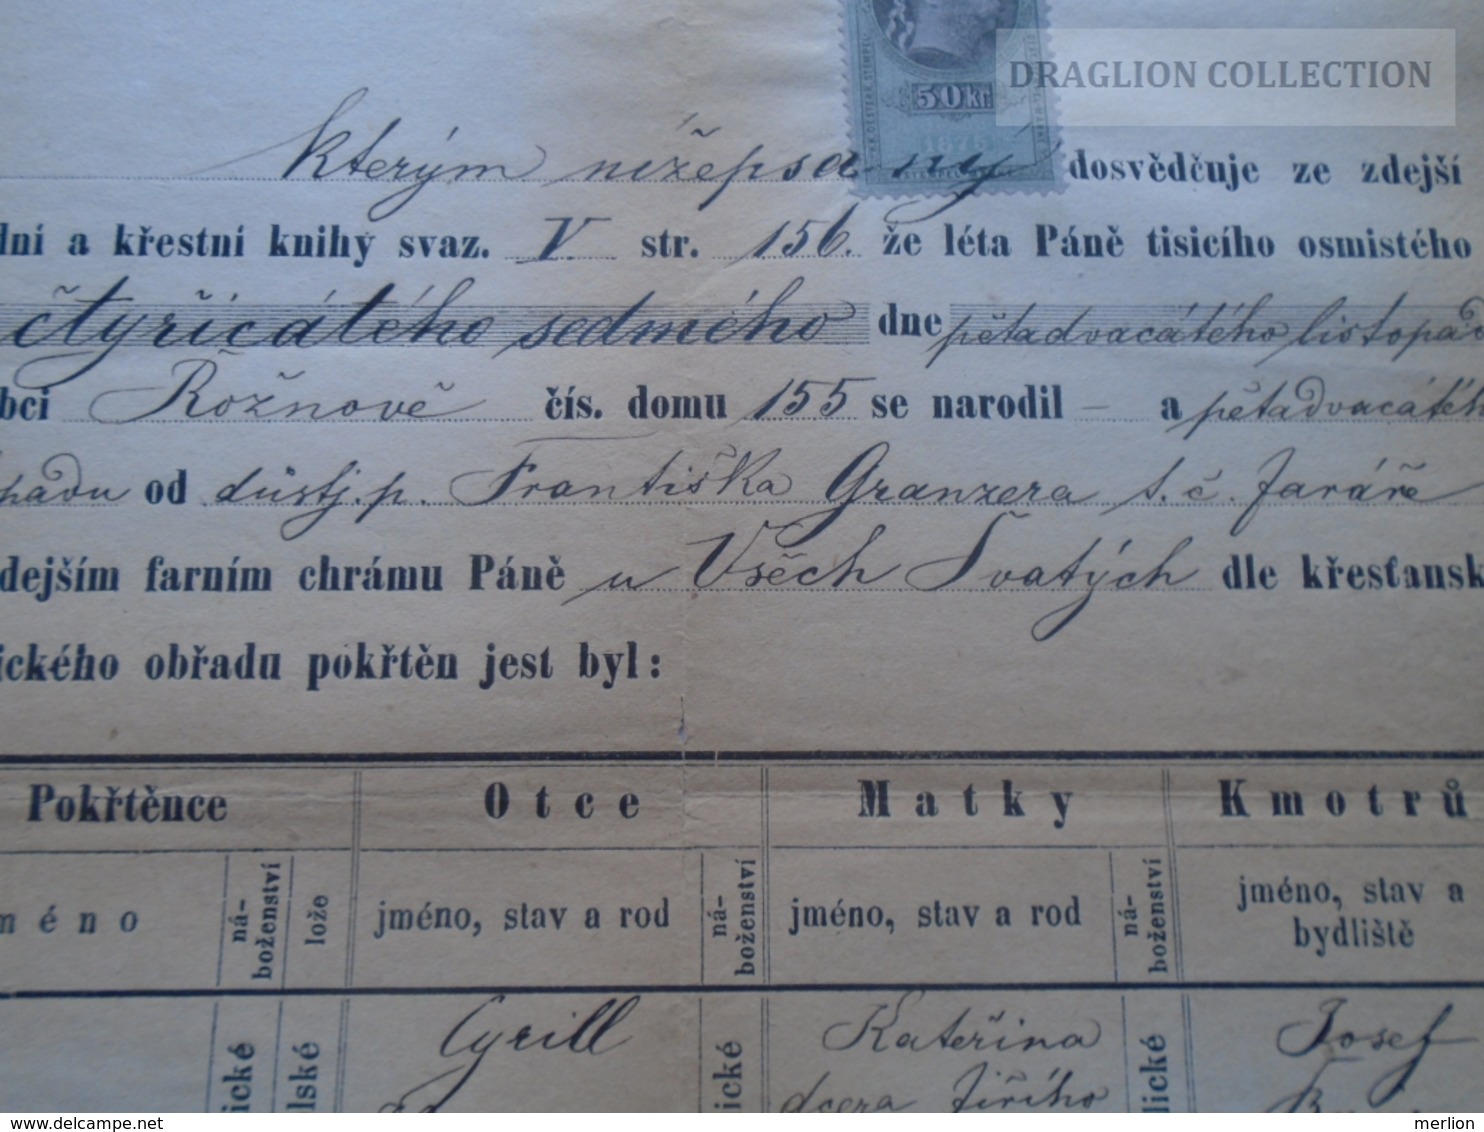 DRAGLION COLLECTION
50 kr
1875
kterým nížepsaný dosvědčuje ze zdejší
dní a křestní knihy svaz. V. str. 156. že léta Páně tisicího osmistého
čtyřicátého sedmého dne pětadvacátého listopad
bci Rožnově čís. domu 155 se narodil – a pětadvacátéh
padu od důstj. p. Františka Granzera t. č. faráře
dejším farním chrámu Páně u Všech Svatých dle křesťansk
ického obřadu pokřtěn jest byl:
Pokřtěnce Otce Matky Kmotrů
méno náboženství lože jméno, stav a rod náboženství jméno, stav a rod náboženství jméno, stav a bydliště
ické lské Cyrill ické Kateřina lické Josef
dcera Jiřího
merlion